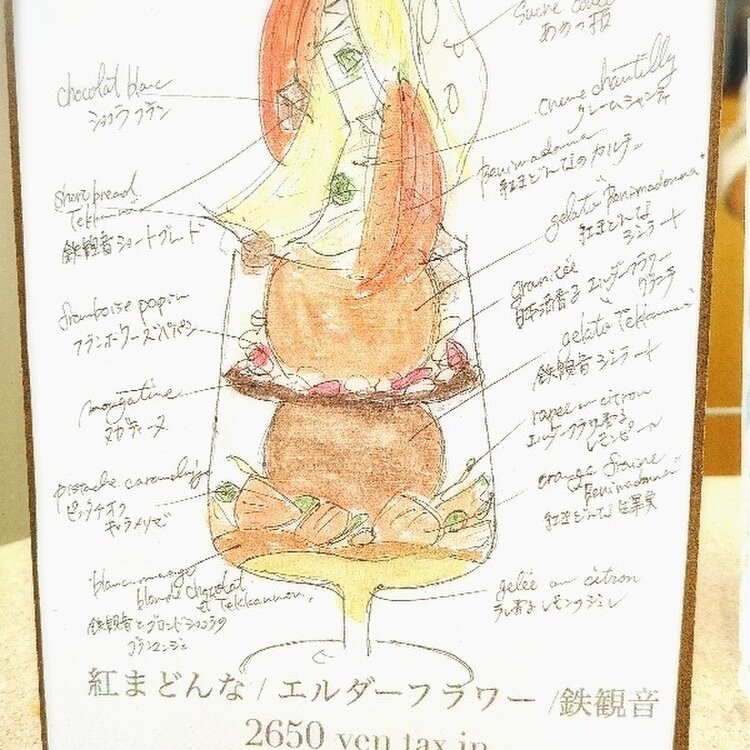 chocolat blanc
ショコラブラン
shortbread
Tekkannon
鉄観音ショートブレッド
framboise pepin
フランボワーズペパン
nougatine
ヌガティーヌ
pistache caramelisée
ピスタチオ
キャラメリゼ
blancmange
blonde chocolat
et Tekkannon
鉄観音とブロンドショコラの
ブランマンジェ
Sucre
あめの板
creme chantilly
クレームシャンティ
Benimadonna
紅まどんなのカルチェ
gelato "Benimadonna"
紅まどんな
ジェラート
granitée
日本酒香る エルダーフラワー
グラニテ
gelato "Tekkannon"
鉄観音 ジェラート
rapée au citron
エルダーフラワー香る
レモンピール
orange fraiche
"Benimadonna"
紅まどんな 生果実
gelée au citron
レモンジュレ
紅まどんな / エルダーフラワー /鉄観音
2650 yen tax in